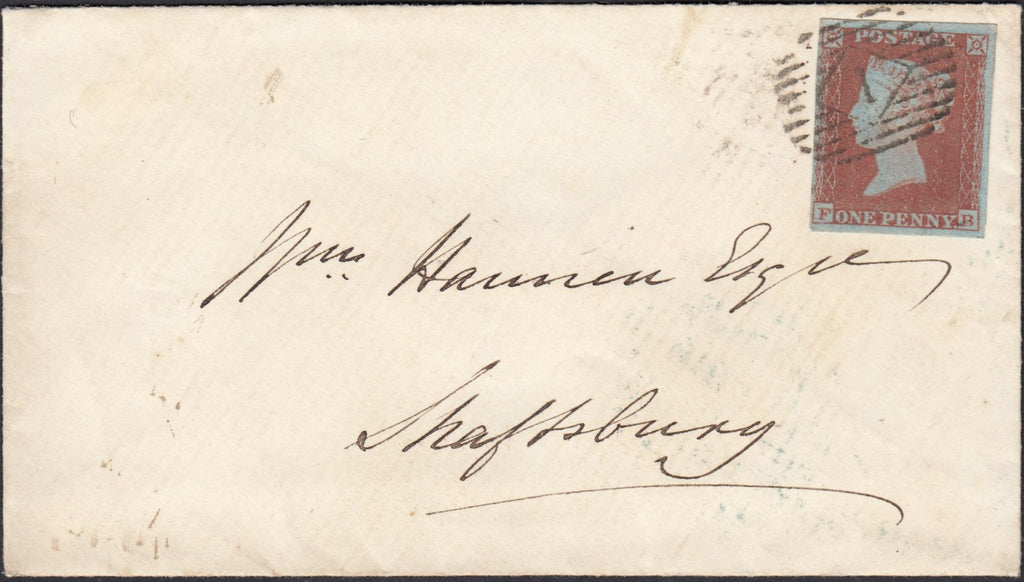 POSTAGE
F ONE PENNY. B
Wm Hannen Esqre
Shaftsbury